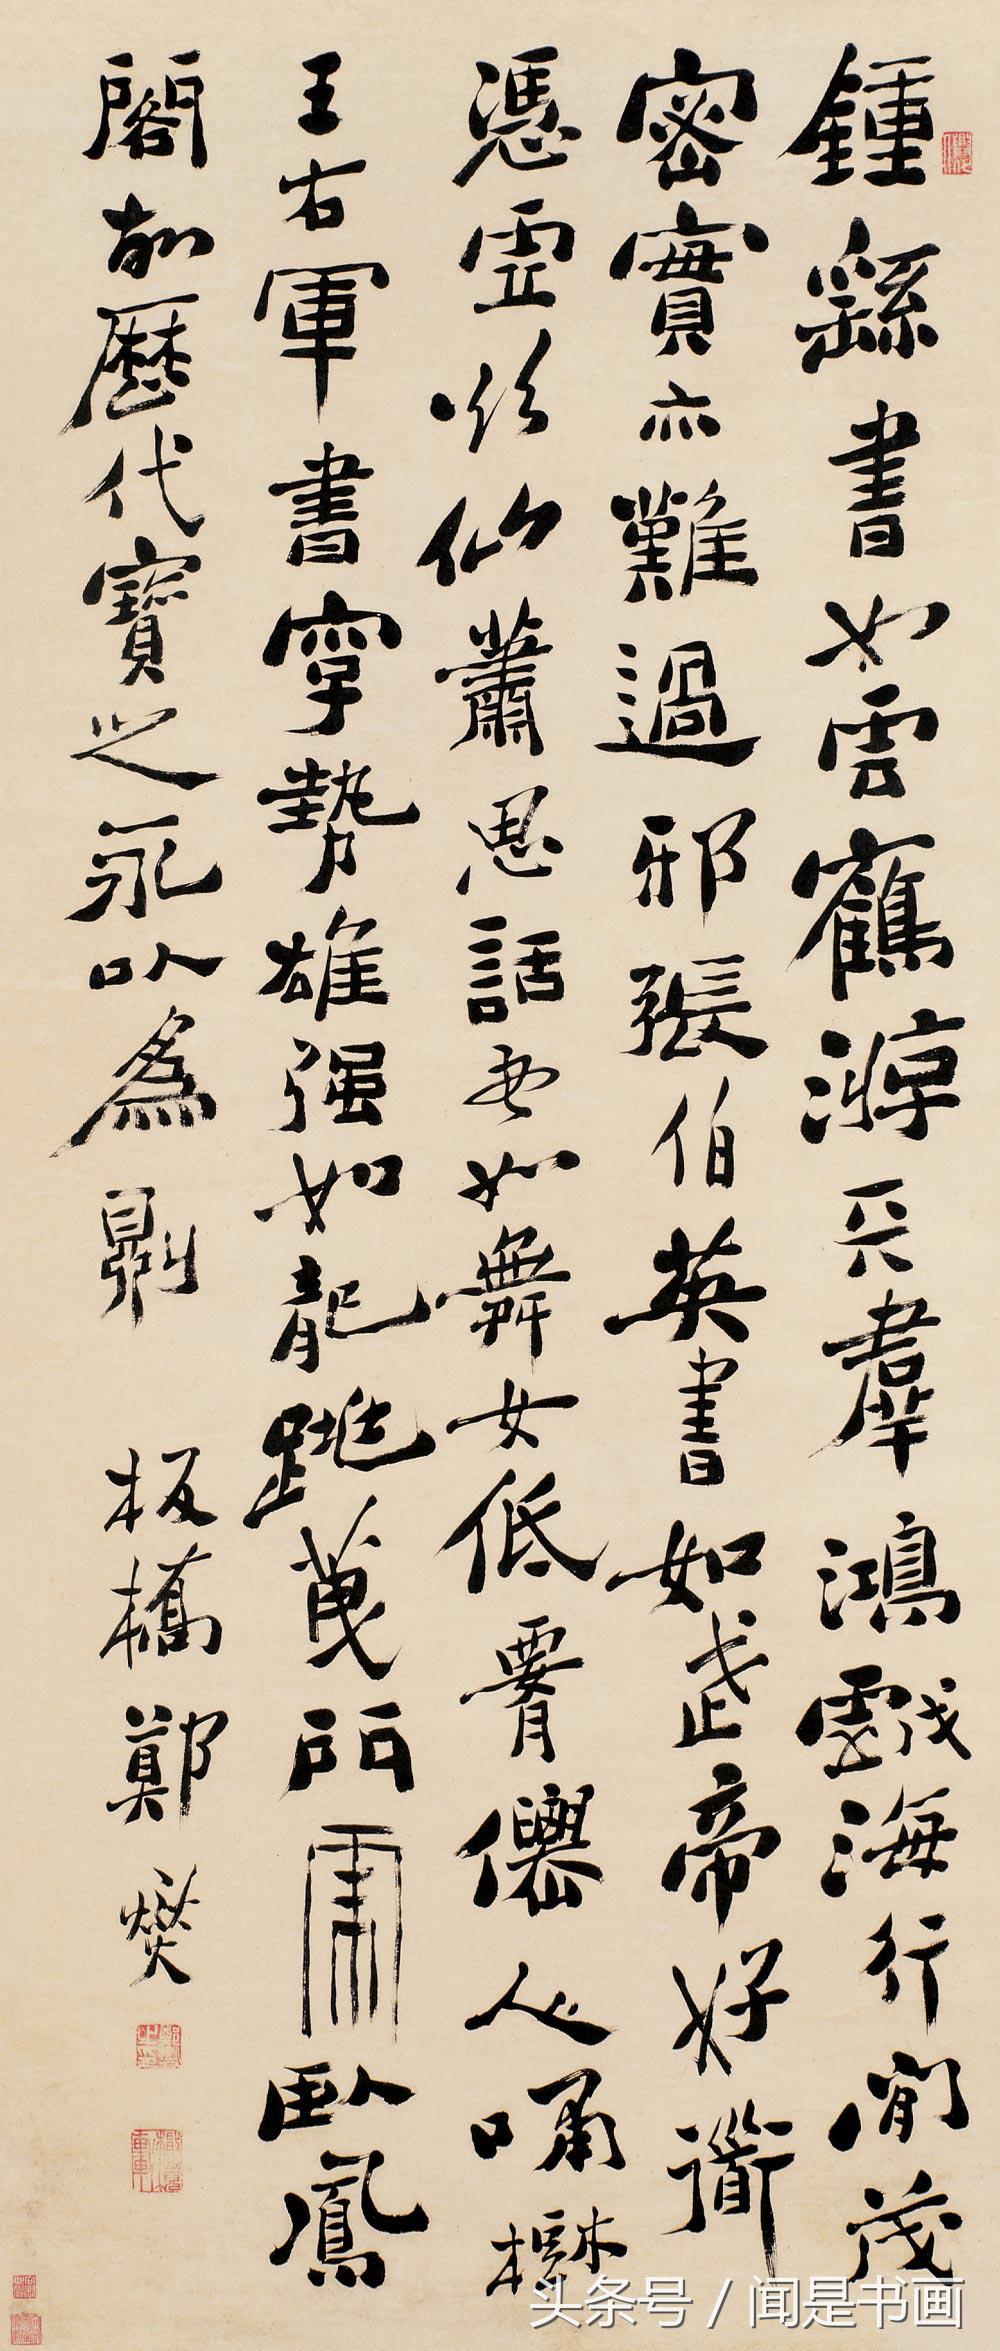 鍾繇書如雲鶴游天群鴻戲海行間茂
密實亦難過邪張伯英書如武帝好道
憑虛欲仙蕭思話書如舞女低腰僊人嘯樹
王右軍書字勢雄强如龍跳天門虎臥鳳
閣故歷代寶之永以為訓
板橋鄭燮
头条号 / 闻是书画